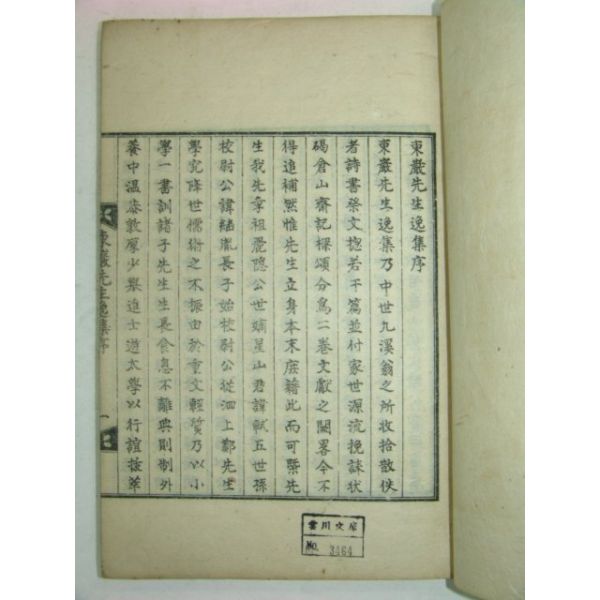 東巖先生逸集序
東巖先生逸集乃中世九溪翁之所收拾散佚
者詩書祭文摠若干篇並付家世源流挽誄狀
碣倉山齋記樑頌分爲二卷文獻之闕畧今不
得追補然惟先生立身本末庶藉此而可槩先
生我先李祖麗隱公世嫡星山君諱軾五世孫
校尉公諱結胤長子始校尉公從泗上鄭先生
學究降世儒術之不振由於重文輕質乃以小
學一書訓諸子先生生長食息不離典則制外
養中溫恭敦厚少擧進士遊太學以行誼拔萃
東巖先生逸集序
一
雲川文庫
No. 3464